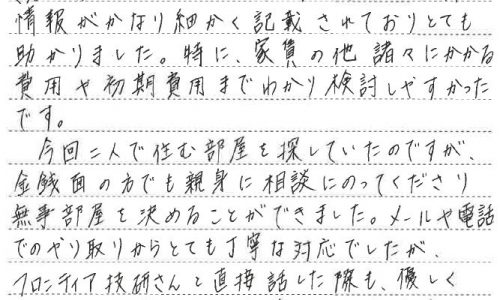 情報がかなり細かく記載されておりとても
助かりました。特に、家賃の他諸々にかかる
費用や初期費用までわかり検討しやすかった
です。
今回二人で住む部屋を探していたのですが、
金銭面の方でも親身に相談にのってくださり
無事部屋を決めることができました。メールや電話
でのやり取りからとても丁寧な対応でしたが、
フロンティア技研さんと直接話した際も、優しく